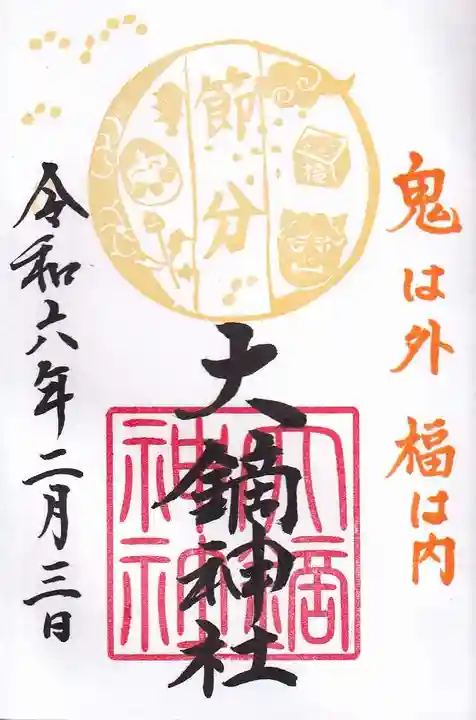 鬼は外 福は内
節分
福
大鏑神社
令和六年二月三日